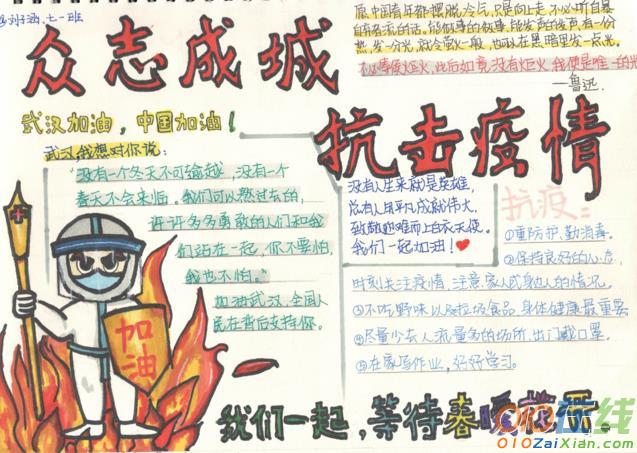 刘子涵,七一班
愿中国青年都摆脱冷气,只是向上走,不必听自暴
自弃者流的话。能做事的做事,能发声的发声。有一份
热,发一分光,就令萤火一般,也可以在黑暗里发一点光,
不必等候炬火,此后如竟没有炬火,我便是唯一的光
——鲁迅.
众志成城
抗击疫情
武汉加油,中国加油!
武汉我想对你说:
"没有一个冬天不可输越,没有一个
春天不会来临。我们可以熬过去的,
许许多多勇敢的人们和我
们站在一起,你不要怕,
我也不怕。"
加油武汉,全国人
民在背后支持你.
没有人生来就是英雄,
总有人用平凡成就伟大,
致敬迎难而上白衣天使。
我们一起加油!
抗疫:
①重防护,勤消毒.
②保持良好的心态,
时刻关注疫情,注意家人或身边人的情况。
③不吃野味以及垃圾食品,身体健康最重要
④尽量少去人流量多的场所,出门戴口罩.
⑤在家写作业,好好学习。
加油
我们一起,等待春暖花开
010在线
010ZaiXian.com